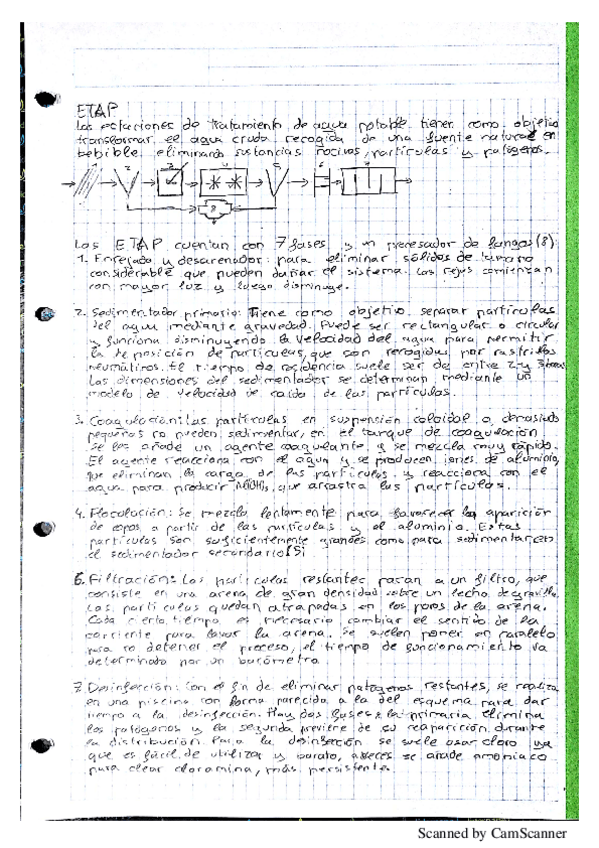 ETAP
Las estaciones de tratamiento de agua potable tienen como objetivo
transformar el agua cruda recogida de una fuente natural en
bebible eliminando sustancias nocivas, partículas y patógenos.
2 3 4 5 6 7
8
Las ETAP cuentan con 7 fases y un procesador de fangos (8):
1. Enrejado y desarenador: para eliminar sólidos de tamaño
considerable que pueden dañar el sistema. Las rejas comienzan
con mayor luz y luego disminuye.
2. Sedimentador primario: Tiene como objetivo separar partículas
del agua mediante gravedad. Puede ser rectangular o circular
y funciona disminuyendo la velocidad del agua para permitir
la deposición de partículas, que son recogidas por rastrillos
neumáticos. El tiempo de residencia suele ser de entre 2 y 3
Las dimensiones del sedimentador se determinan mediante un
modelo de velocidad de caída de las partículas.
3. Coagulación: Las partículas en suspensión coloidal o demasiado
pequeñas no pueden sedimentar, en el tanque de coagulación
se les añade un agente coagulante y se mezcla muy rápido.
El agente reacciona con el agua y se producen iones de aluminio,
que eliminan la carga de las partículas, y reacciona con el
agua para producir Al(OH)₃, que arrastra las partículas.
4. Floculación: Se mezcla lentamente para favorecer la aparición
de copos a partir de las partículas y el aluminio. Estas
partículas son suficientemente grandes como para sedimentar en
el sedimentador secundario (5)
6. Filtración: Las partículas restantes pasan a un filtro, que
consiste en una arena de gran densidad sobre un lecho de gravilla.
Las partículas quedan atrapadas en los poros de la arena.
Cada cierto tiempo es necesario cambiar el sentido de la
corriente para lavar la arena. Se suelen poner en paralelo
para no detener el proceso, el tiempo de funcionamiento va
determinado por un barómetro
7. Desinfección: Con el fin de eliminar patógenos restantes, se realiza
en una piscina con forma parecida a la del esquema para dar
tiempo a la desinfección. Hay dos fases: la primaria elimina
los patógenos y la segunda previene de su reaparición durante
la distribución. Para la desinfección se suele usar cloro ya
que es fácil de utilizar y barato, a veces se añade amoníaco
para crear cloramina, más persistente.
Scanned by CamScanner